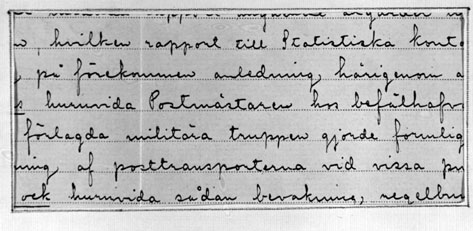 , hvilken rapport till Statistiska konto
på förekommen anledning, härigenom a
s huruvida Postmästaren hos befälhafv
förlagda militära truppen gjorde formlig
ning af posttransporterna vid vissa pu
ock huruvida sådan bevakning, regelbu